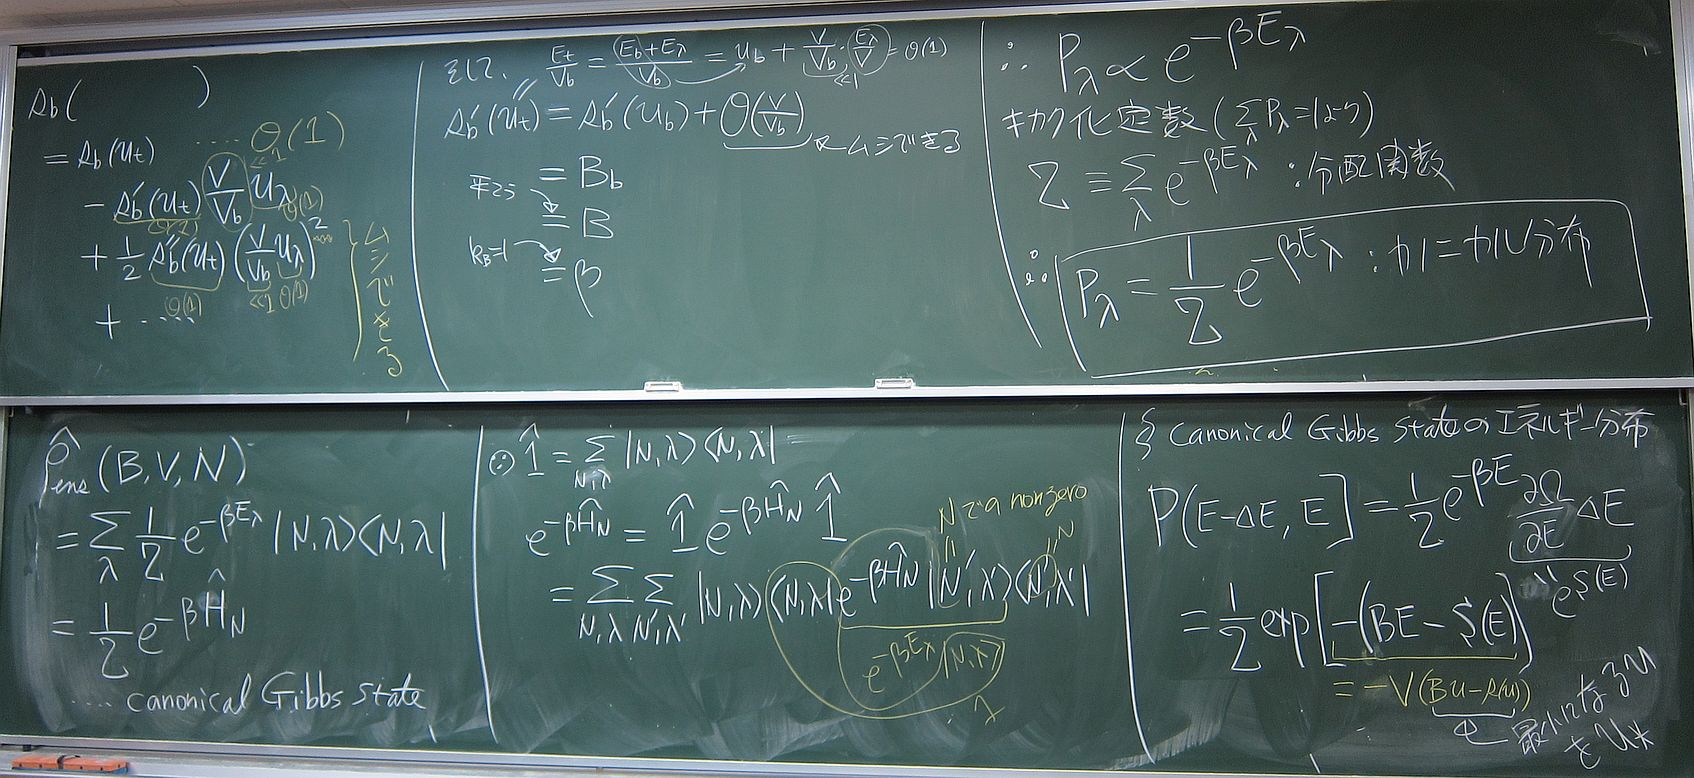 s_b(        )
= s_b(u_t) ..... O(1)
- s_b'(u_t) (V/V_b) u_λ
O(1) ≪1 O(1)
+ 1/2 s_b''(u_t) (V/V_b u_λ)^2
O(1) ≪1 O(1)
+ .....
ムシできる
そして、 E_t/V_b = (E_b+E_λ)/V_b = u_b + V/V_b · E_λ/V = O(1)
≪1
s_b'(u_t) = s_b'(u_b) + O(V/V_b)
ムシできる
= B_b
平こう
= B
k_B=1
= β
∴ P_λ ∝ e^{-βE_λ}
キカク化定数 (Σ_λ P_λ=1より)
Z ≡ Σ_λ e^{-βE_λ} : 分配関数
∴ P_λ = 1/Z e^{-βE_λ} : カノニカル分布
ρ̂_ens (B,V,N)
= Σ_λ 1/Z e^{-βE_λ} |N,λ><N,λ|
= 1/Z e^{-βĤ_N}
..... canonical Gibbs state
☉ 1̂ = Σ_{N,λ} |N,λ><N,λ|
e^{-βĤ_N} = 1̂ e^{-βĤ_N} 1̂
Nでのみ nonzero
N N
= Σ_{N,λ} Σ_{N',λ'} |N,λ><N,λ|e^{-βĤ_N}|N',λ'><N',λ'|
e^{-βE_λ'}|N,λ'>
§ Canonical Gibbs Stateのエネルギー分布
P(E-ΔE, E] = 1/Z e^{-βE} ∂Ω/∂E ΔE
e^{S(E)}
= 1/Z exp[-(BE - S(E))]
= -V(Bu-s(u))
最小になるu
をu*